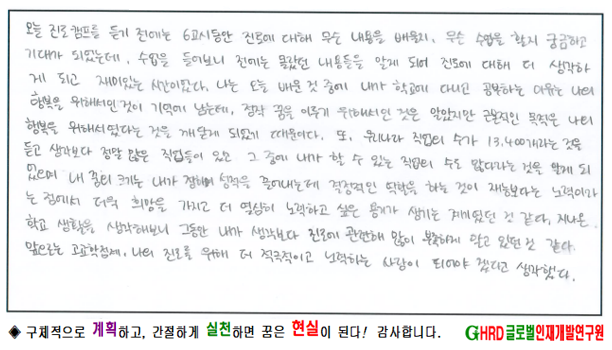 오늘 진로캠프를 듣기 전에는 6교시동안 진로에 대해 무슨 내용을 배울지, 무슨 수업을 할지 궁금하고
기대가 되었는데, 수업을 들어보니 전에는 몰랐던 내용들을 알게 되어 진로에 대해 더 생각하
게 되고 재미있는 시간이었다. 나는 오늘 배운 것 중에 내가 학교에 다니고 공부하는 이유는 나의
행복을 위해서인 것이 기억에 남는데, 정작 꿈을 이루기 위해서인 것은 알았지만 궁극적인 목적은 나의
행복을 위해서였다는 것을 깨닫게 되었기 때문이다. 또, 우리나라 직업의 수가 13,400개라는 것을
듣고 생각보다 정말 많은 직업들이 있고 그 중에 내가 할 수 있는 직업의 수도 많다라는 것을 알게 되
었으며 내 꿈의 크기는 내가 정하며 성적을 끌어내는데 결정적인 역할을 하는 것이 재능보다는 노력이라
는 점에서 더욱 희망을 가지고 더 열심히 노력하고 싶은 용기가 생기는 계기였던 것 같다. 지나온
학교 생활을 생각해보니 그동안 내가 생각보다 진로에 관련해 많이 부족하게 알고 있었던 것 같다.
앞으로는 고교학점제, 나의 진로를 위해 더 적극적이고 노력하는 사람이 되어야 겠다고 생각했다.
◈ 구체적으로 계획하고, 간절하게 실천하면 꿈은 현실이 된다! 감사합니다. GHRD 글로벌인재개발연구원